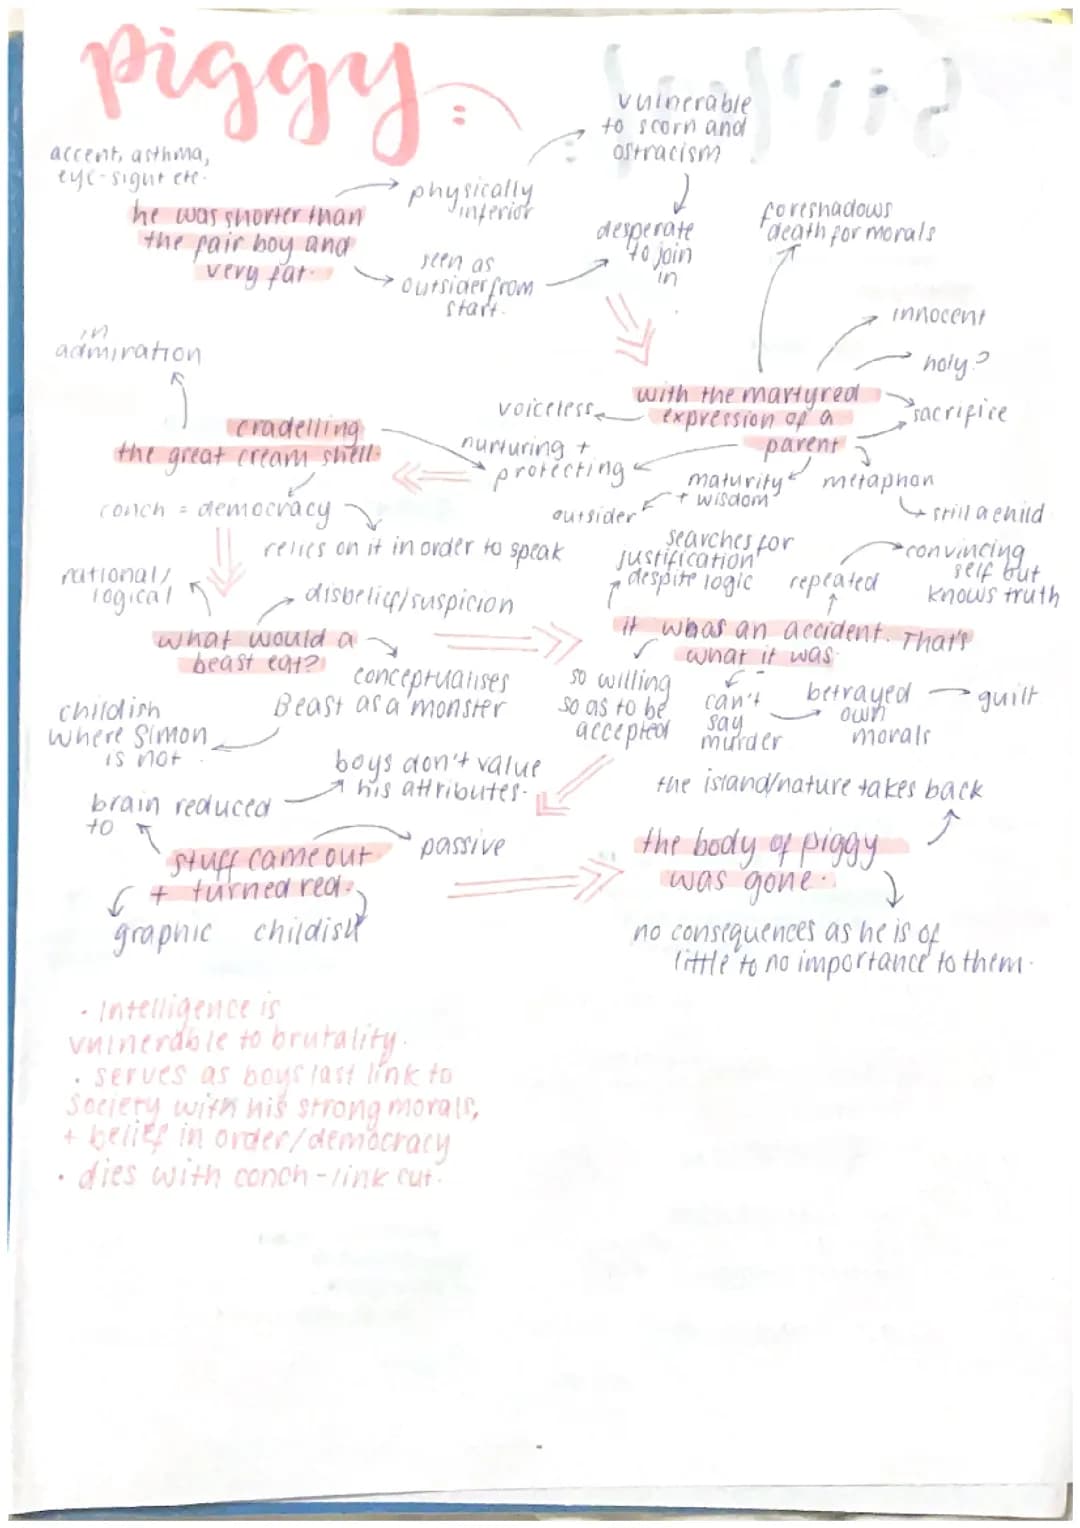 piggy :
vulnerable
to scorn and
ostracism
accent, asthma,
eye-sight etc.
physically
inferior
he was shorter than
the fair boy and
very fat.
seen as
outsider from
start.
desperate
to join
in
foreshadows
death for morals
innocent
holy?
in
admiration
with the martyred
expression of a
parent
voiceless
sacrifice
cradelling
the great cream shell.
nurturing +
protecting
maturity
+ wisdom
metaphor
outsider
still a child
conch = democracy
relies on it in order to speak
searches for
justification
despite logic
repeated
convincing
self but
knows truth
rational/
logical
disbelief/suspicion
what would a
beast eat?
it whas an accident. That's
what it was.
conceptualises
Beast as a monster
so willing
so as to be
accepted
can't
say
murder
betrayed
own
morals
guilt
childish
where Simon
is not
boys don't value
his attributes.
the island/nature takes back
brain reduced
to
stuff came out
+ turned red.
passive
the body of piggy
was gone.
graphic childish
no consequences as he is of
little to no importance to them.
• Intelligence is
vulnerable to brutality.
• serves as boys last link to
society with his strong morals,
+ belief in order/democracy
• dies with conch - link cut.